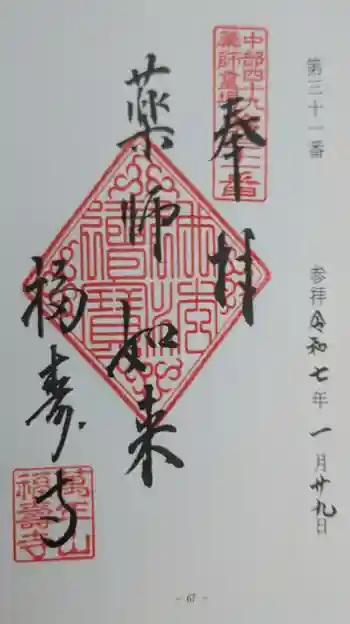 第三十一番
参拝令和七年一月廿九日
中部四十九
薬師霊場
三十一番
奉拝
薬師如来
佛法僧寶
福寿寺
萬年山
福壽寺
- 67 -